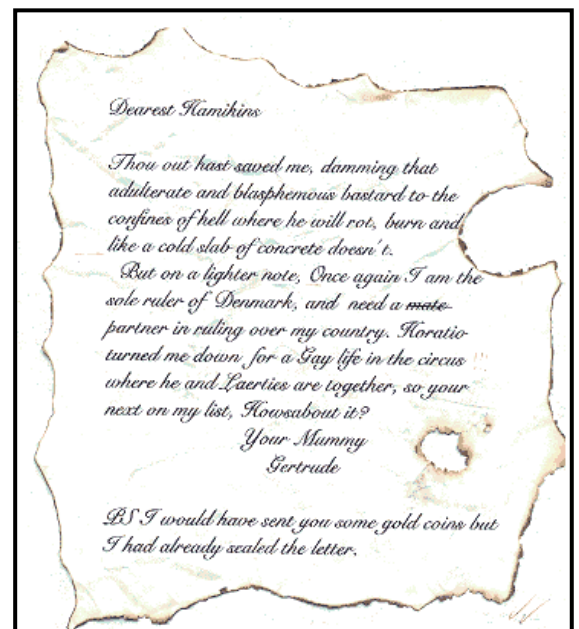 Dearest Hamikins
Thou out hast saved me, damming that
adulterate and blasphemous bastard to the
confines of hell where he will rot, burn and
like a cold slab of concrete doesn't.
But on a lighter note, Once again I am the
sole ruler of Denmark, and need a mate
partner in ruling over my country. Horatio
turned me down for a Gay life in the circus
where he and Laerties are together, so your
next on my list, Howsabout it?
Your Mummy
Gertrude
PS I would have sent you some gold coins but
I had already sealed the letter.